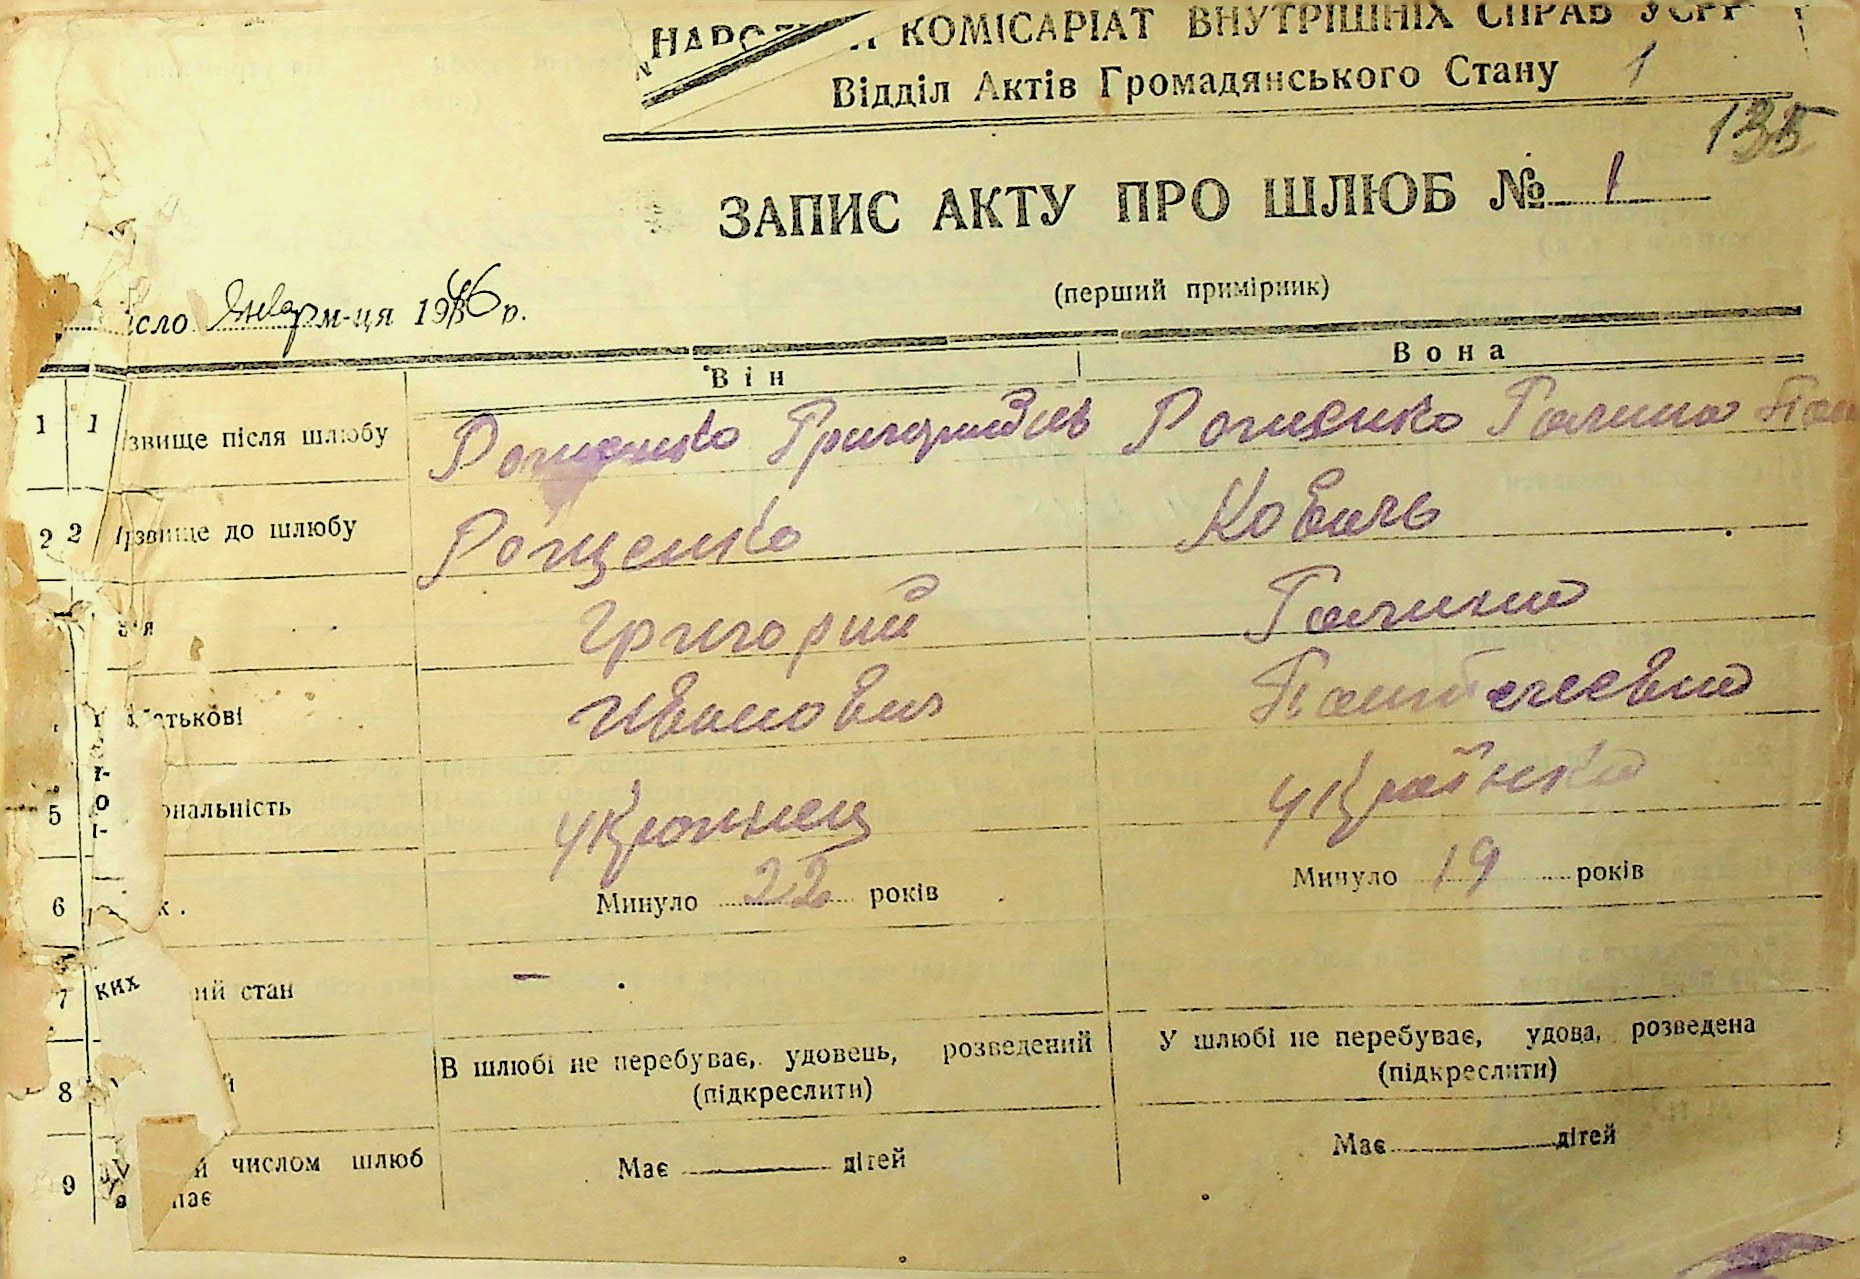 КОМІСАРІАТ ВНУТРІШНІХ СПРАВ УСРР
Відділ Актів Громадянського Стану 1
135
ЗАПИС АКТУ ПРО ШЛЮБ № 1
(перший примірник)
м-ця 1946 р.
Він Вона
1 1 звище після шлюбу Рощенко Рощенко Галина
2 2 звище до шлюбу Рощенко Коваль
Григорий Галина
атькові Иванович Пантелеевна
5 ональність Украинец Українка
6 к. Минуло 22 років Минуло 19 років
7 ких ий стан –
8 й В шлюбі не перебуває, удовець, розведений У шлюбі не перебуває, удова, розведена
(підкреслити) (підкреслити)
9 й числом шлюб Має дітей Має дітей